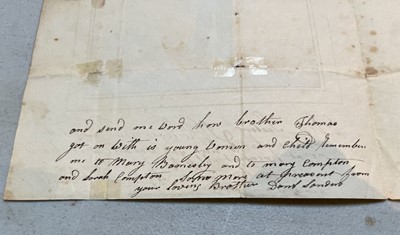 and send me word how brother Thomas
got on With is young Women and Child Remember
me to Mary Barnesby and to mary Compton
and Sarah Compton So no More at Preasent from
your loving Brother Danl Sanders